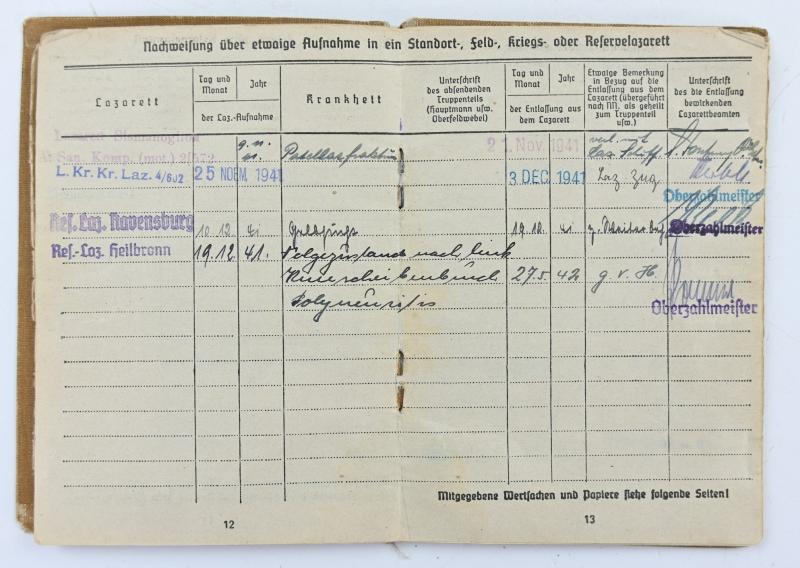 Nachweisung über etwaige Aufnahme in ein Standort-, Feld-, Kriegs- oder Reservelazarett
Lazarett
Tag und Monat
Jahr
der Laz.-Aufnahme
Krankheit
Unterschrift des absendenden Truppenteils (Hauptmann usw. Oberfeldwebel)
Tag und Monat
Jahr
der Entlassung aus dem Lazarett
Etwaige Bemerkung in Bezug auf die Entlassung aus dem Lazarett (übergeführt nach M., als geheilt zum Truppenteil usw.)
Unterschrift des die Entlassung bewirkenden Lazarettbeamten
San. Komp. (mot.) 2/572
Patellarfraktur
Nov. 1941
verl. mit Laz. Schiff
L. Kr. Kr. Laz. 4/602
25 NOEM 1941
3 DEC 1941
Laz. Zug
Oberzahlmeister
Res. Laz. Ravensburg
10.12. 41
19.12. 41
Oberzahlmeister
Res.-Laz. Heilbronn
19.12 41.
Folgezustand nach link
Kniescheibenbruch
27.5. 42
g. v. H.
Polyneuritis
Oberzahlmeister
Mitgegebene Wertsachen und Papiere siehe folgende Seiten!
12
13